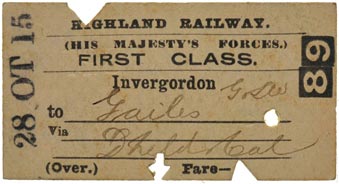 HIGHLAND RAILWAY.
(HIS MAJESTY'S FORCES.)
FIRST CLASS.
Invergordon
to Gailes
Via
(Over.) Fare—
28 OT 15
89